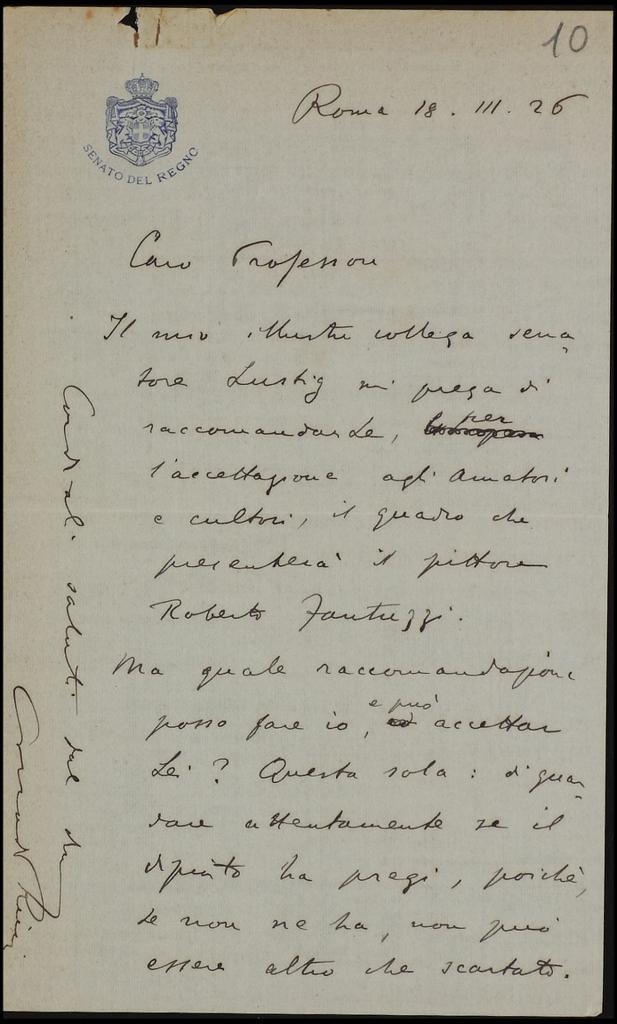 10
SENATO DEL REGNO
Roma 18. III. 26
Caro Professore
Il mio illustre collega sena-
tore Lustig mi prega di
raccomandarLe, per
l'accettazione agli Amatori
e cultori, il quadro che
presenterà il pittore
Roberto Fantuzzi.
Ma quale raccomandazione
posso fare io, e può accettar
Lei? Questa sola: di guar-
dare attentamente se il
dipinto ha pregi, poichè,
se non ne ha, non può
essere altro che scartato.
Cordiali saluti dal suo
Corrado Ricci